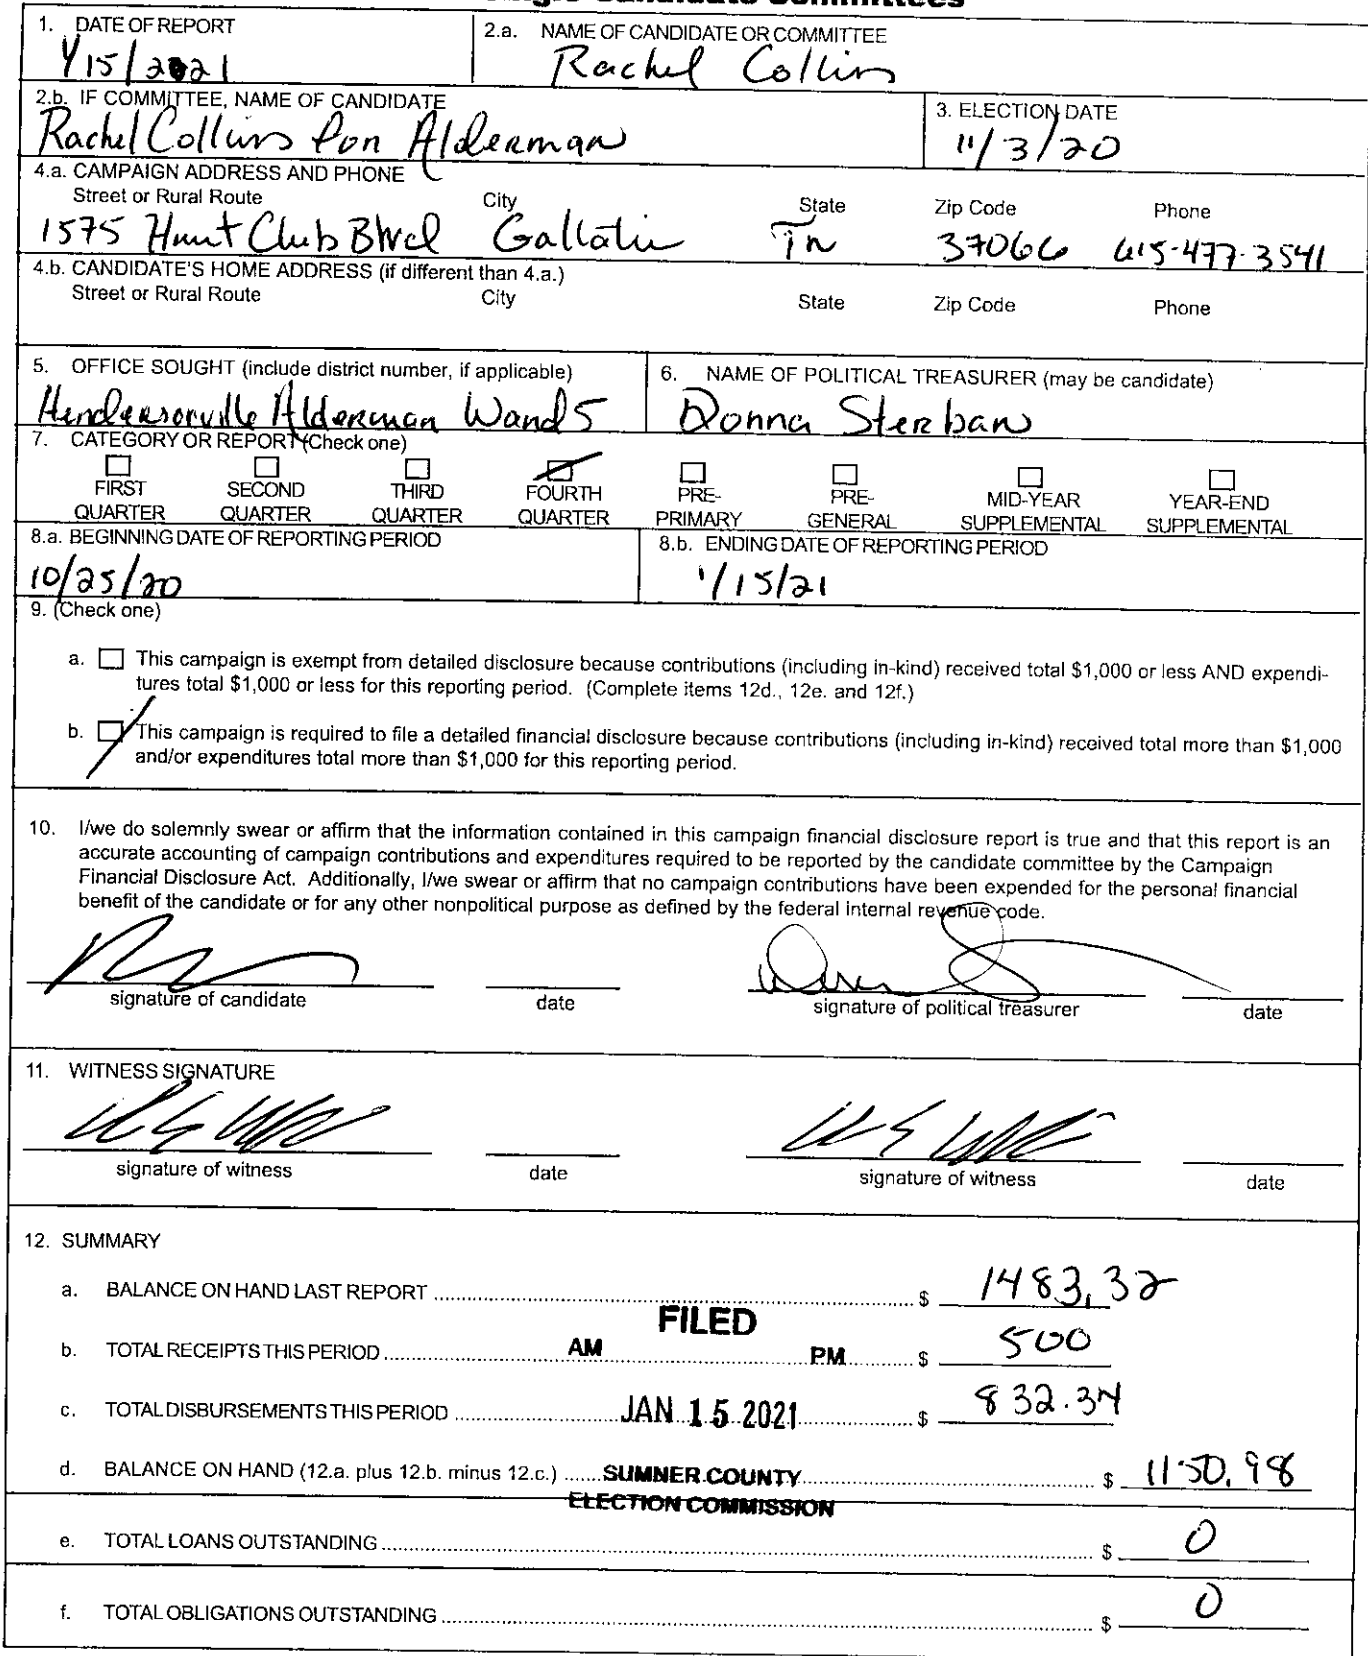 1. DATE OF REPORT
1/15/2021
2.a. NAME OF CANDIDATE OR COMMITTEE
Rachel Collins
2.b. IF COMMITTEE, NAME OF CANDIDATE
Rachel Collins for Alderman
3. ELECTION DATE
11/3/20
4.a. CAMPAIGN ADDRESS AND PHONE
Street or Rural Route City State Zip Code Phone
1575 Hunt Club Blvd Gallatin Tn 37066 615-477-3541
4.b. CANDIDATE'S HOME ADDRESS (if different than 4.a.)
Street or Rural Route City State Zip Code Phone
5. OFFICE SOUGHT (include district number, if applicable)
Hendersonville Alderman Ward 5
6. NAME OF POLITICAL TREASURER (may be candidate)
Donna Sterban
7. CATEGORY OR REPORT (Check one)
FIRST QUARTER
SECOND QUARTER
THIRD QUARTER
FOURTH QUARTER
PRE-PRIMARY
PRE-GENERAL
MID-YEAR SUPPLEMENTAL
YEAR-END SUPPLEMENTAL
8.a. BEGINNING DATE OF REPORTING PERIOD
10/25/20
8.b. ENDING DATE OF REPORTING PERIOD
1/15/21
9. (Check one)
a. This campaign is exempt from detailed disclosure because contributions (including in-kind) received total $1,000 or less AND expendi-
tures total $1,000 or less for this reporting period. (Complete items 12d., 12e. and 12f.)
b. This campaign is required to file a detailed financial disclosure because contributions (including in-kind) received total more than $1,000
and/or expenditures total more than $1,000 for this reporting period.
10. I/we do solemnly swear or affirm that the information contained in this campaign financial disclosure report is true and that this report is an
accurate accounting of campaign contributions and expenditures required to be reported by the candidate committee by the Campaign
Financial Disclosure Act. Additionally, I/we swear or affirm that no campaign contributions have been expended for the personal financial
benefit of the candidate or for any other nonpolitical purpose as defined by the federal internal revenue code.
signature of candidate date signature of political treasurer date
11. WITNESS SIGNATURE
signature of witness date signature of witness date
12. SUMMARY
a. BALANCE ON HAND LAST REPORT $ 1483,32
FILED
b. TOTAL RECEIPTS THIS PERIOD AM PM $ 500
c. TOTAL DISBURSEMENTS THIS PERIOD JAN 15 2021 $ 832.34
d. BALANCE ON HAND (12.a. plus 12.b. minus 12.c.) SUMNER COUNTY $ 1150,98
ELECTION COMMISSION
e. TOTAL LOANS OUTSTANDING $ 0
f. TOTAL OBLIGATIONS OUTSTANDING $ 0